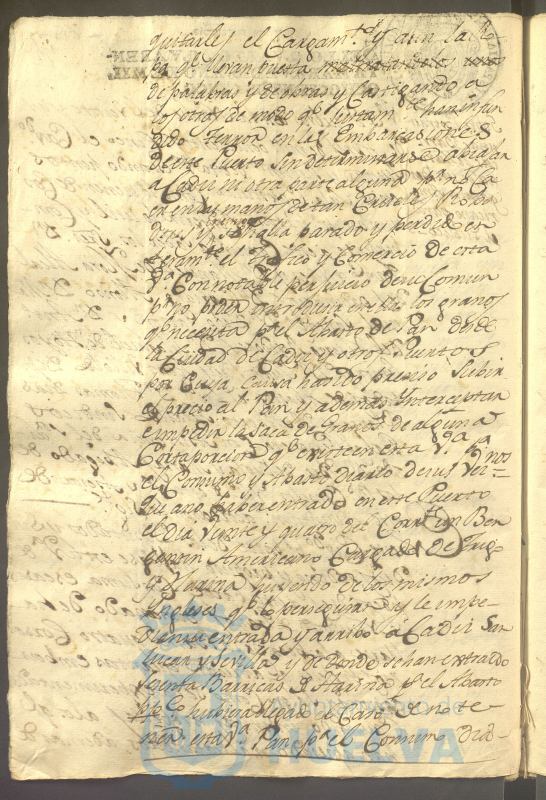 quitarles el Cargam.to y aun la Ro
pa q.e llevan puesta maltratandoles
de palabras y de obras y Castigando a
los otros de modo q.e han infun
dido terror en las Embarcaciones
de este Puerto sin determinarse a biajar
a Cadiz ni otra parte alguna p.r no Ca
er en las manos de tan Crueles
se halla parado y perdido en
teram.te el Trafico y Comercio de esta
V.a Con notable perjuicio de su Comun
p.r no poder introducir en ella los granos
q.e necesita p.a el Abasto de Pan desde
la Ciudad de Cadiz y otros Puertos
por Cuya Causa ha sido preciso subir
el precio al Pan y ademas Interceptar
e impedir la saca de Granos de alguna
Corta porcion q.e existe en esta V.a p.a
el Consumo y Abasto diario de sus Veci
nos
que a no haber entrado en este Puerto
el dia Veinte y quatro del Corr.te un Ber
gantin Americano Cargado de Trigo
y Harina huyendo de los mismos
Ingleses q.e lo perseguian y le impe
dian la entrada y arribo a Cadiz San
lucar y Sevilla y de donde se han extraido
sesenta Barricas de Harina p.a el Abasto
hubiera llegado el Caso de no te
ner esta V.a Pan p.a el Consumo dia
HUELVA